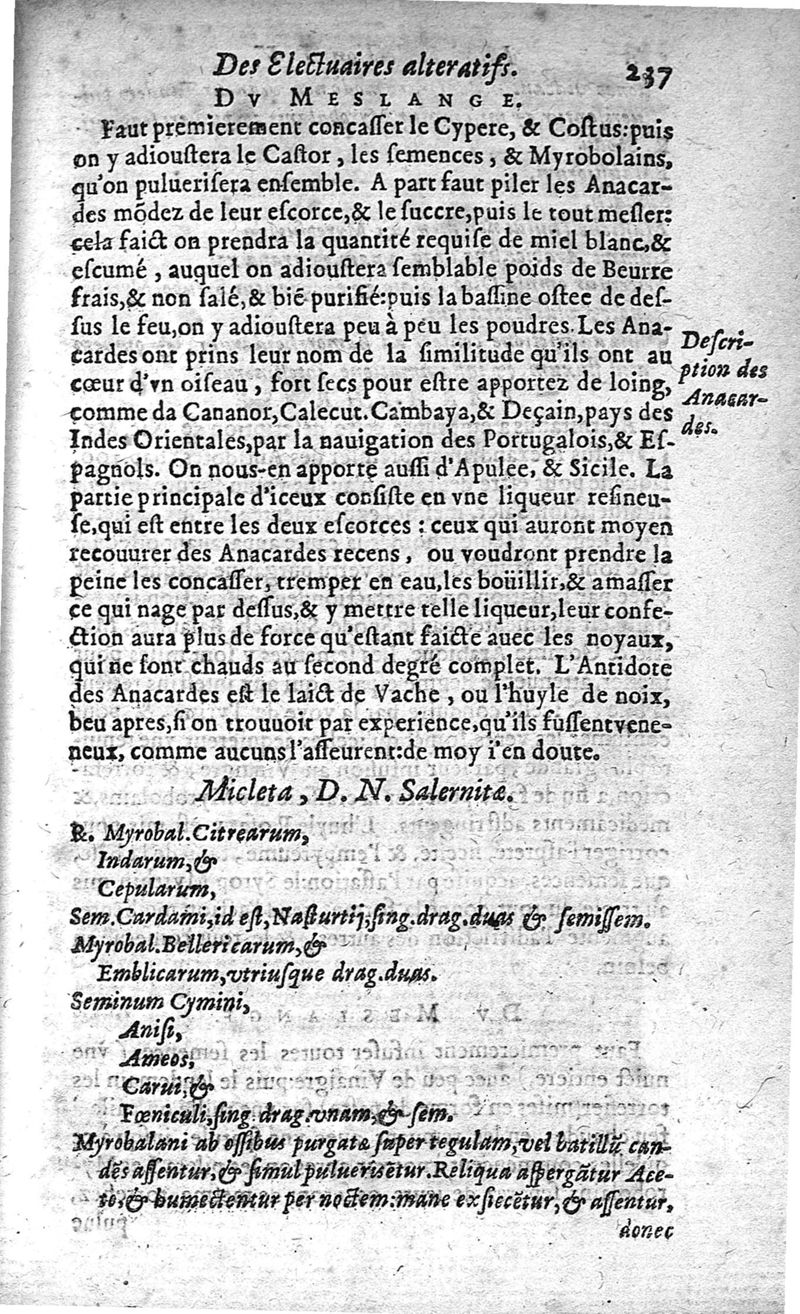 Des Electuaires alteratifs. 237
DV MESLANGE.
Faut premierement concasser le Cypere, & Costus: puis
on y adioustera le Castor, les semences, & Myrobolains,
qu'on puluerisera ensemble. A part faut piler les Anacar-
des mõdez de leur escorce, & le succre, puis le tout mesler:
cela faict on prendra la quantité requise de miel blanc, &
escumé, auquel on adioustera semblable poids de Beurre
frais, & non salé, & biẽ purifié: puis la bassine ostee de des-
sus le feu, on y adioustera peu à peu les poudres. Les Ana-
cardes ont prins leur nom de la similitude qu'ils ont au
cœur d'vn oiseau, fort secs pour estre apportez de loing,
comme da Cananor, Calecut. Cambaya, & Deçain, pays des
Indes Orientales, par la nauigation des Portugalois, & Es-
pagnols. On nous-en apporte aussi d'Apulee, & Sicile. La
partie principale d'iceux consiste en vne liqueur resineu-
se, qui est entre les deux escorces : ceux qui auront moyen
recouurer des Anacardes recens, ou voudront prendre la
peine les concasser, tremper en eau, les boüillir, & amasser
ce qui nage par dessus, & y mettre telle liqueur, leur confe-
ction aura plus de force qu'estant faicte auec les noyaux,
qui ne sont chauds au second degré complet. L'Antidote
des Anacardes est le laict de Vache, ou l'huyle de noix,
beu apres, si on trouuoit par experience, qu'ils fussent vene-
neux, comme aucuns l'asseurent: de moy i'en doute.
Descri-
ption des
Anacar-
des.
Micleta, D. N. Salernitæ.
℞. Myrobal. Citrearum,
Indarum, &
Cepularum,
Sem. Cardami, id est, Nasturtij, sing. drag. duas & semissem.
Myrobal. Bellericarum, &
Emblicarum, vtriusque drag. duas.
Seminum Cymini,
Anisi,
Ameos,
Carui, &
Fœniculi, sing. drag. vnam, & sem.
Myrobalani ab ossibus purgatæ super tegulam, vel batillũ can-
dẽs assentur, & simul puluerisẽtur. Reliqua aspergãtur Ace-
to, & humectentur per noctem: mane exsiccẽtur, & assentur,
donec